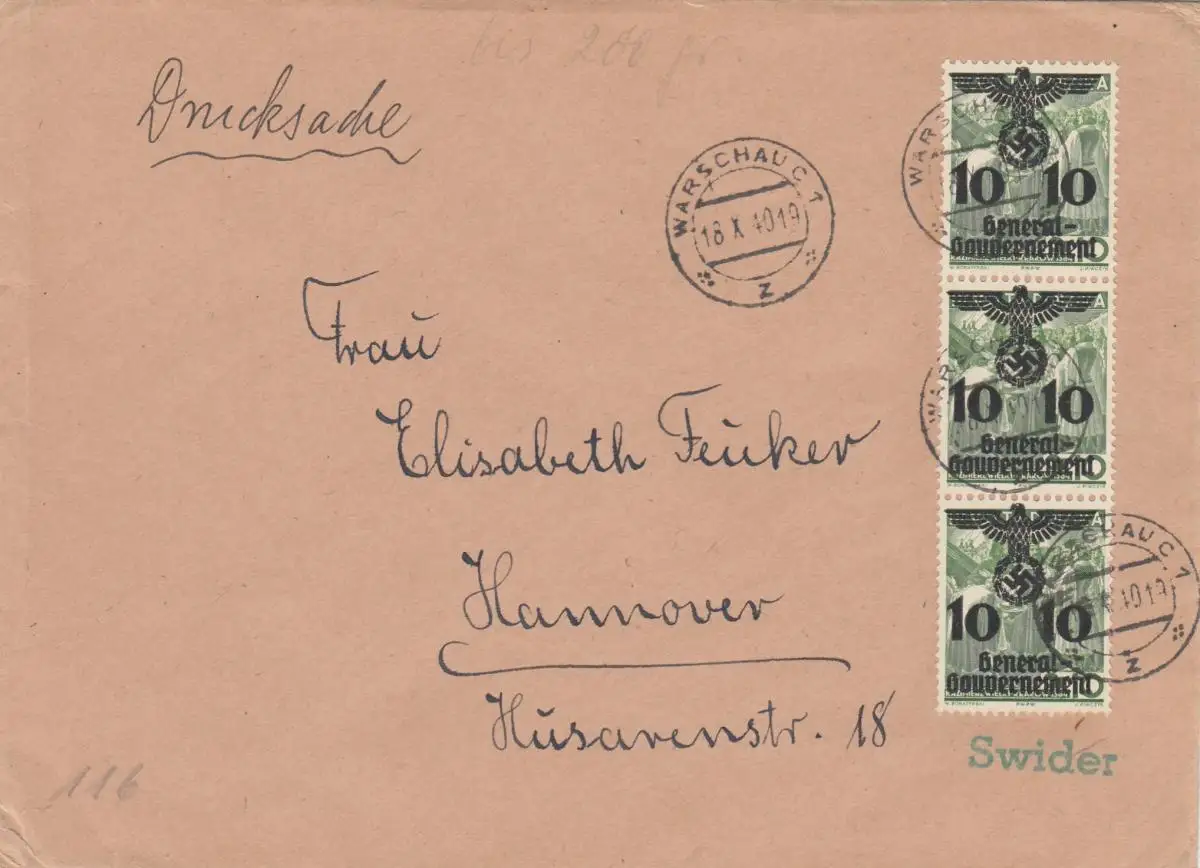 bis 200 gr.
Drucksache
WARSCHAU C 1
18 X 40 19
Z
Frau
Elisabeth Feuker
Hannover
Husarenstr. 18
A
10 10
General-
Gouvernement
A
10 10
General-
Gouvernement
WARSCHAU C 1
40 19
Z
A
10 10
General-
Gouvernement
Swider
116